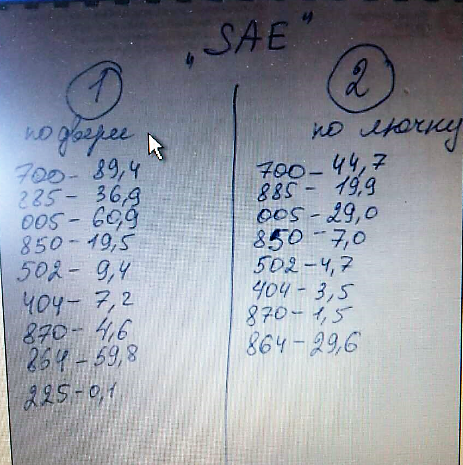 „SAE"
1
по двери
700 - 89,4
285 - 36,9
005 - 60,9
850 - 19,5
502 - 9,4
404 - 7,2
870 - 4,6
864 - 59,8
225 - 0,1
2
по лючку
700 - 44,7
885 - 19,9
005 - 29,0
850 - 7,0
502 - 4,7
404 - 3,5
870 - 1,5
864 - 29,6